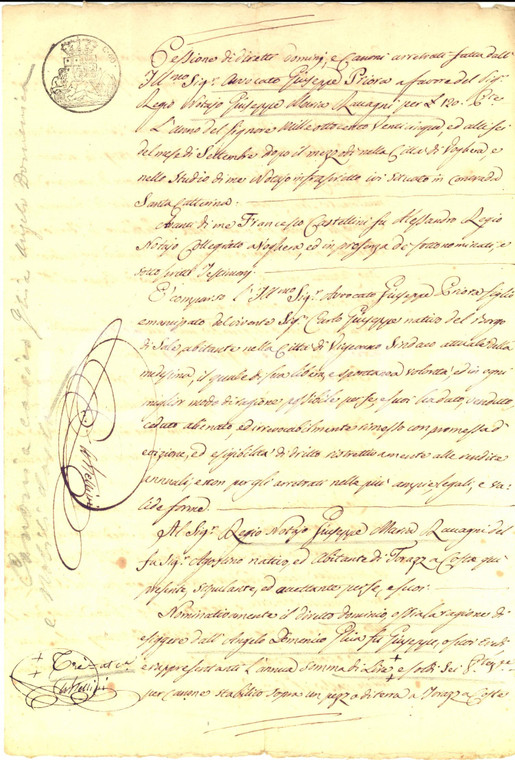 Cessione di diretti Domini, e Canoni arretrati fatta dall'
Ill.mo Sig.r Avvocato Giuseppe Priora a favore del Sig.
Regio Notajo Giuseppe Maria Ravagni per £ 120.
L'anno del Signore Mille ottocento Venticinque, ed alli sei
del mese di Settembre dopo il mezzodì nella Città di Voghera, e
nello Studio di me Notajo infrascritto ivi situato in contrada
Santa Catterina.
Avanti di me Francesco Castellini fu Alessandro Regio
Notajo Collegiato a Voghera, ed in presenza de' sottonominati, e
sottoscritti Testimoni.
È comparso l'Ill.mo Sig.r Avvocato Giuseppe Priora figlio
emancipato del vivente Sig.r Carlo Giuseppe nativo del Borgo
di Sale, abitante nella Città di Vigevano Sindaco attuale della
medesima, il quale di sua libera, e spontanea volontà, ed in ogni
miglior modo di ragione possibile per se, e suoi ha dato, venduto,
ceduto, alienato, ed irrevocabilmente rimesso con promessa d'
evizione, ed esigibilità di dritto ristrettivamente alle rendite
annuali, e non per gli arretrati nella più ampia legale, e va-
lida forma
Al Sig.r Regio Notajo Giuseppe Maria Ravagni del
fu Sig.r Agostino nativo, ed abitante di Torazza Coste qui
presente, stipulante, ed accettante per se, e suoi.
Nominativamente il diretto dominio, ossia la ragione di
esigere dall' Angelo Domenico Ghia fu Giuseppe, o suoi Eredi
e rappresentanti l'annua somma di Lire e soldi sei
per canone stabilito sopra un pezzo di terra a Torazza Coste
Castellini
Tre
Castellini
Angelo Domenico